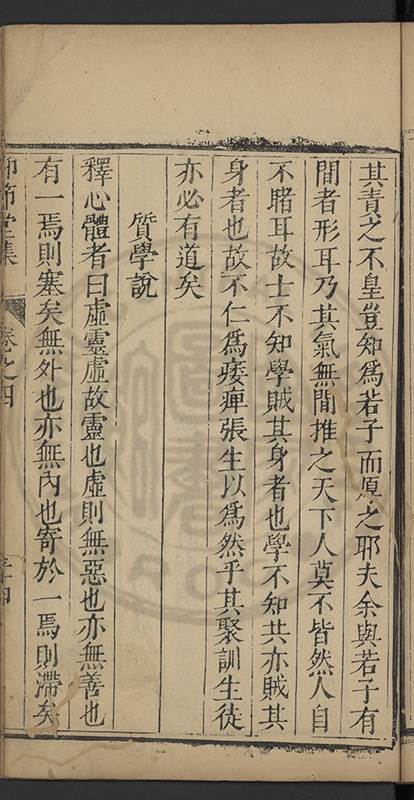 其責之不皇豈知為若子而原之耶夫余與若子有
間者形耳乃其氣無間推之天下人莫不皆然人自
不睹耳故士不知學賊其身者也學不知共亦賊其
身者也故不仁為痿痺張生以為然乎其聚訓生徒
亦必有道矣
質學說
釋心體者曰虛靈虛故靈也虛則無惡也亦無善也
有一焉則塞矣無外也亦無內也寄於一焉則滯矣
仰節堂集
卷之四